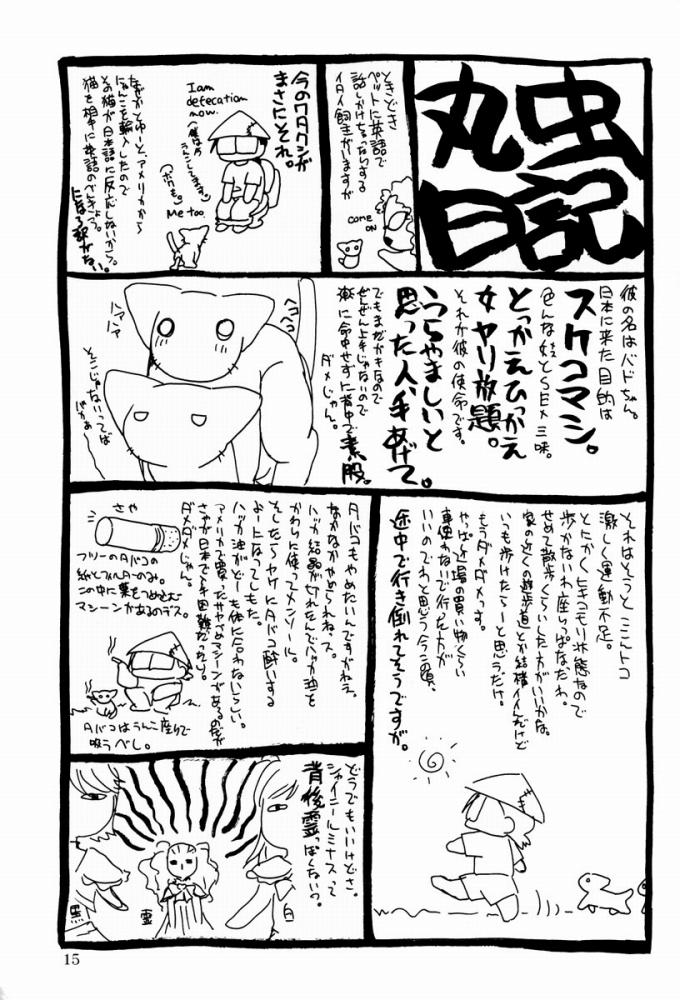 丸虫
日記
ときどき
ペットに英語で
話しかけちゃったりする
イタイ飼主がいますが
come
ON
今のワタクシが
まさにそれ。
I am
defecation
now.
Me too.
なぜかとゆーとアメリカから
にゃんこを輸入したので
その猫が日本語に反応しないから。
猫を相手に英語のべんきょう。
になる訳がない。
彼の名はバドちゃん。
日本に来た目的は
スケコマシ。
色んな娘とSEX三昧。
とっかえひっかえ
女ヤリ放題。
それが彼の使命です。
うらやましいと
思った人、手あげて。
でもまだガキなので
ぜんぜん上手じゃないので
膣に命中せずに背中で素股。
ダメじゃん。
ヘコ
ヘコ
ハァ
ハァ
そこじゃないってば
ばかぁ
それはそうとここんトコ
激しく運動不足。
とにかくヒキコモリ状態なので
歩かないわ座いっぱなしだわ。
せめて散歩くらいした方がいいかな。
家の近くの遊歩道とか結構イイんだけど
いつも歩けたらーと思うだけ。
もうダメダメっす。
やっぱ近場の買い物くらい
車使わないで行った方が
いいのでわと思う今この頃、
途中で行き倒れてそうですが。
タバコもやめたいんですがねぇ。
なかなかやめられねぇス。
ハッカ結晶が切れたんでハッカ油を
かわりに使ってメンソール。
そしたらヤケにタバコ酔いする
よーになってしもた。
ハッカ油がどーも体に合わないらしい。
アメリカで買ったサヤづめマシーンがあるのだが
さやが日本で入手困難だったり。
ダメダメじゃん。
さや
フツーのタバコの
紙とフィルターのみ。
この中に葉をつめ込む
マシーンがあるのデス。
タバコはうんこ座りで
吸うべし。
どうでもいいけどさ。
シャイニールミナスって
背後霊っぽくない?
黒
霊
白
15